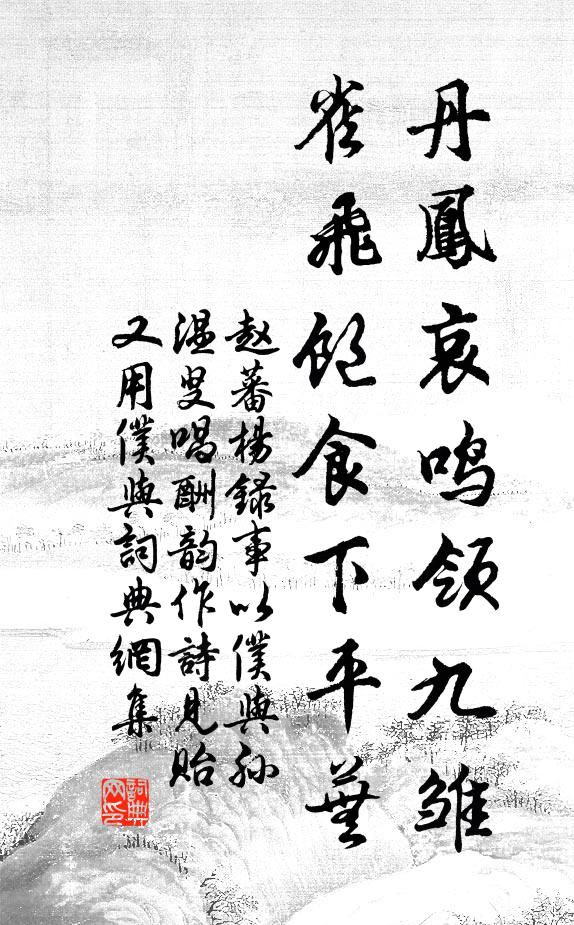 丹鳳哀鳴領九雏
雀飛飽食下平蕪
赵蕃楊録事以僕與孙
温叟唱酬韵作詩見贻
又用僕與詞典網集
詞典
网印